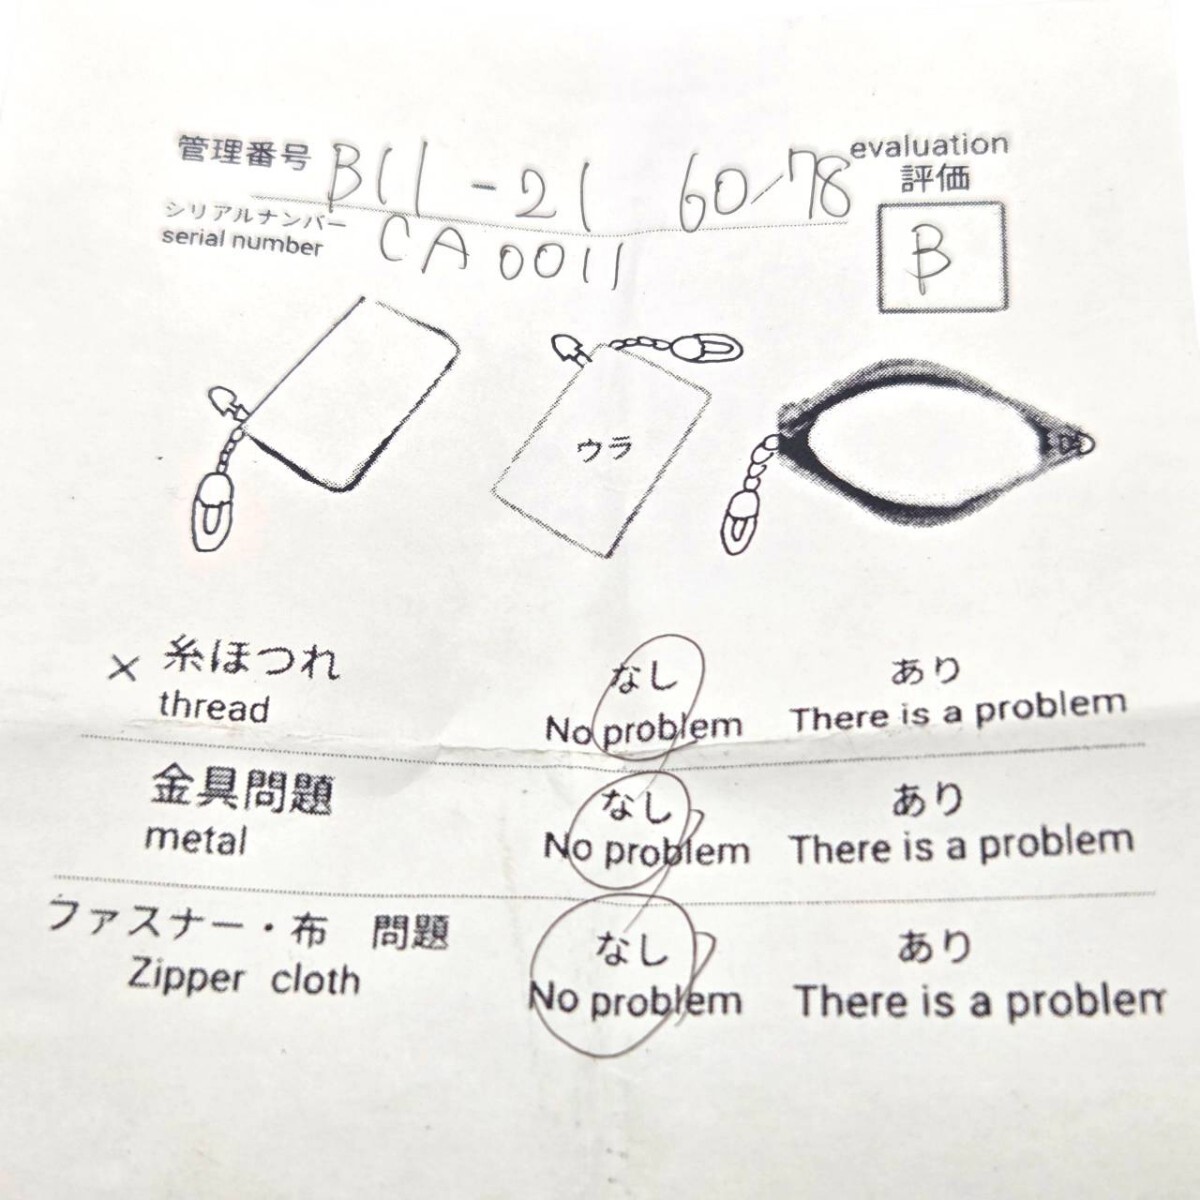 管理番号 B11-21 60-78
evaluation
評価
シリアルナンバー
serial number CA0011
B
ウラ
× 糸ほつれ なし あり
thread No problem There is a problem
金具問題 なし あり
metal No problem There is a problem
ファスナー・布 問題 なし あり
Zipper cloth No problem There is a problem